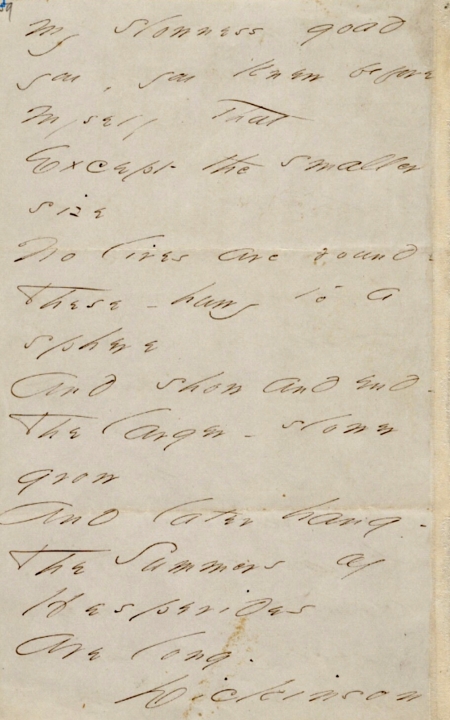 My slowness goad
you, you knew before
Myself, That
Except the smaller
size
No lives are round -
These - hurry to a
sphere
And show and end -
The larger - slower
grow
And later hang -
The Summers of
Hesperides
Are long.
Dickinson